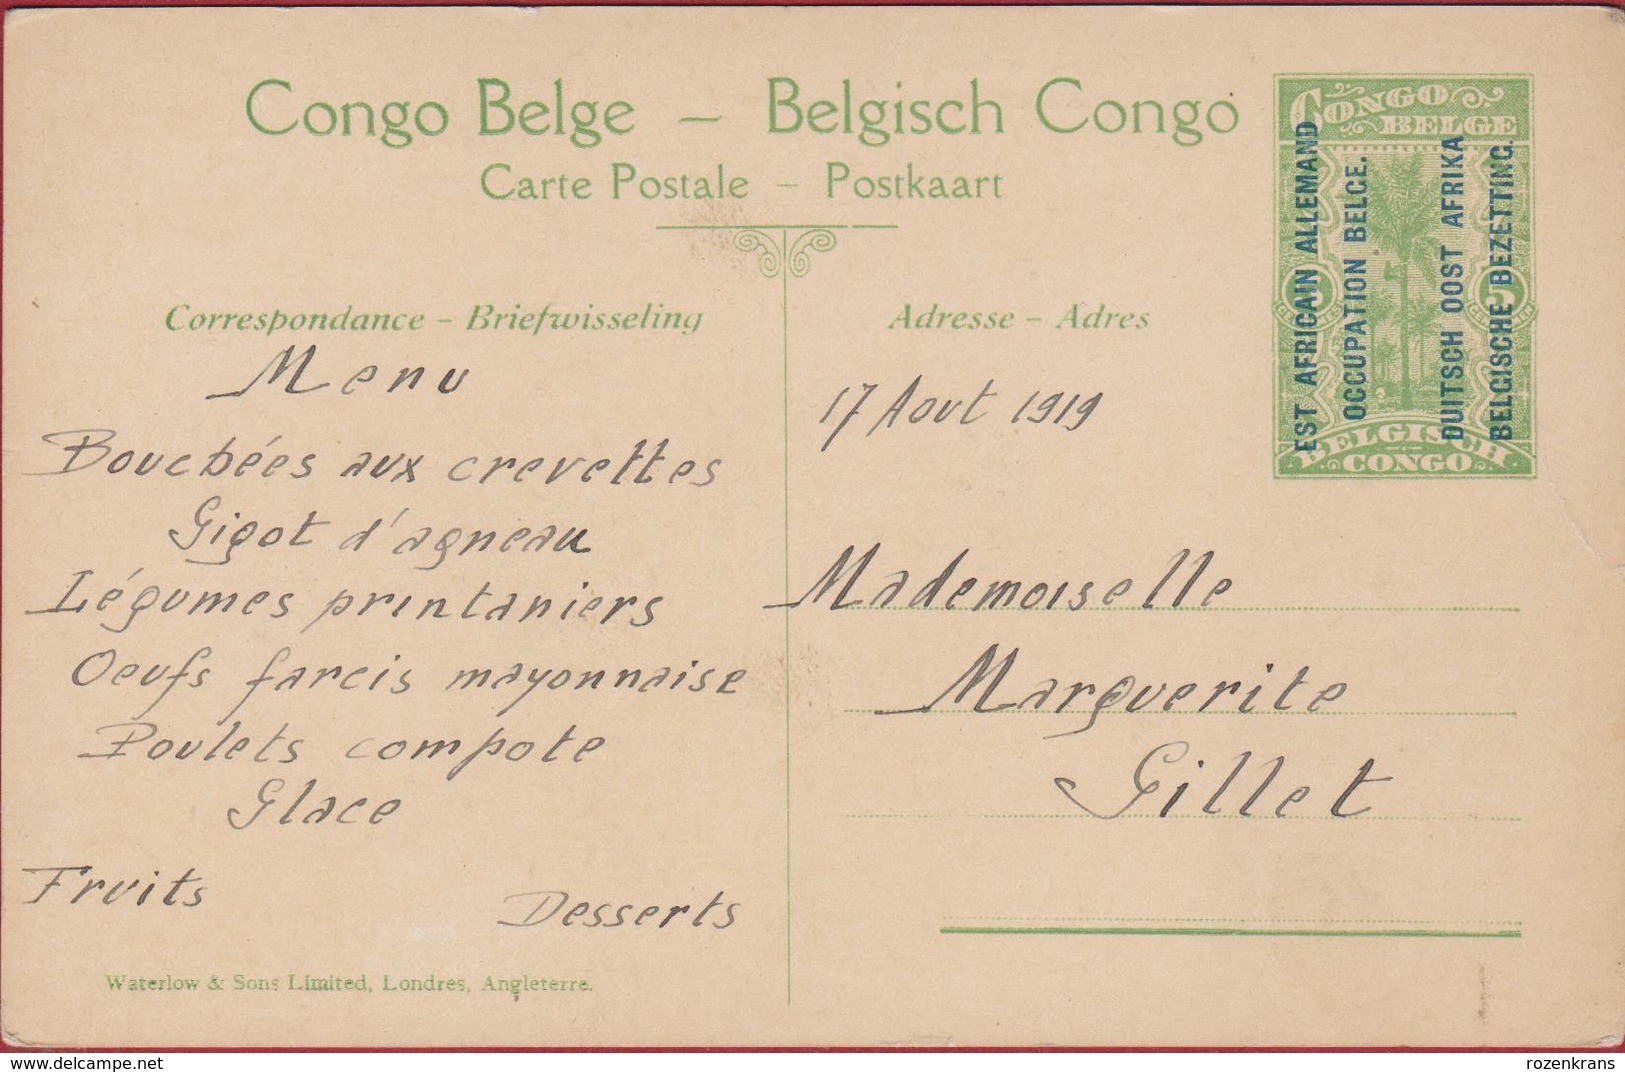 Congo Belge – Belgisch Congo
Carte Postale – Postkaart
CONGO
BELGE
EST AFRICAIN ALLEMAND
OCCUPATION BELGE.
DUITSCH OOST AFRIKA
BELGISCHE BEZETTING.
5
5
BELGISCH
CONGO
Correspondance – Briefwisseling
Menu
Bouchées aux crevettes
Gigot d'agneau
Légumes printaniers
Oeufs farcis mayonnaise
Poulets compote
Glace
Fruits
Desserts
Waterlow & Sons Limited, Londres, Angleterre.
Adresse – Adres
17 Aout 1919
Mademoiselle
Marguerite
Gillet
www.delcampe.net
rozenkrans